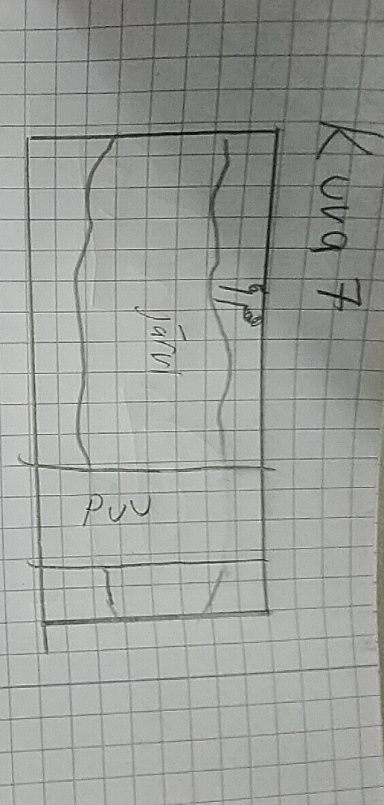 Kuva 7
Järvi
puu